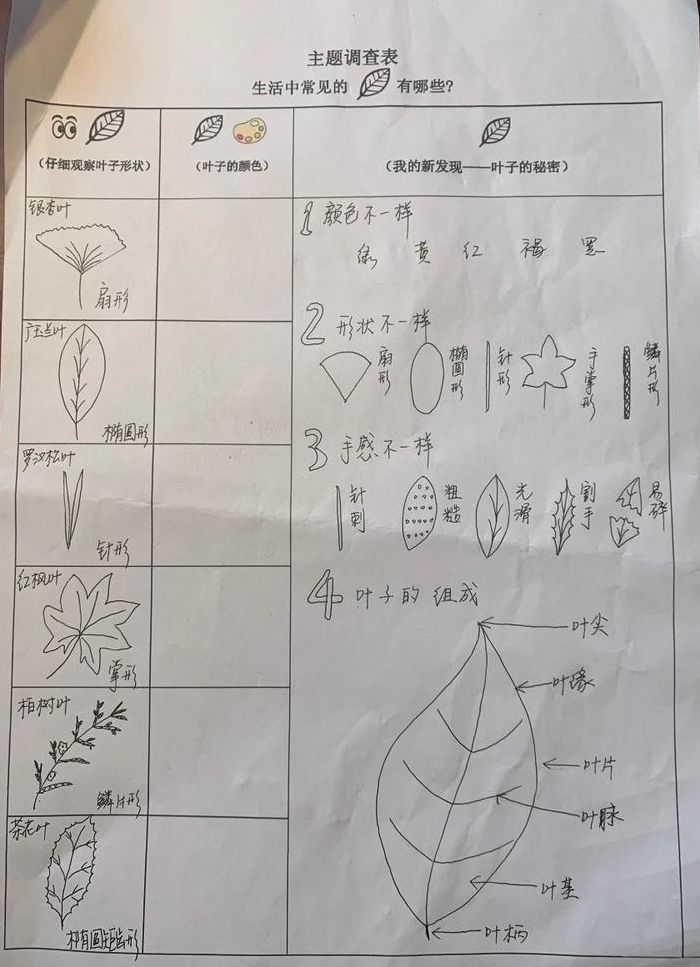 主题调查表
生活中常见的 有哪些?
(仔细观察叶子形状)
(叶子的颜色)
(我的新发现——叶子的秘密)
银杏叶
扇形
广玉兰叶
椭圆形
罗汉松叶
针形
红枫叶
掌形
柏树叶
鳞片形
茶花叶
椭圆矩齿形
1 颜色不一样
绿 黄 红 褐 黑
2 形状不一样
扇形
椭圆形
针形
手掌形
鳞片形
3 手感不一样
针刺
粗糙
光滑
割手
易碎
4 叶子的组成
叶尖
叶缘
叶片
叶脉
叶茎
叶柄